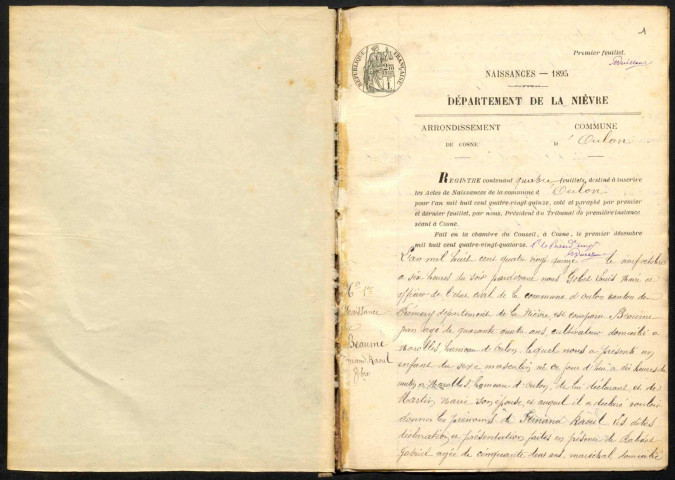 1
Premier feuillet.
RÉPUBLIQUE FRANÇAISE
NAISSANCES — 1895
DÉPARTEMENT DE LA NIÈVRE
ARRONDISSEMENT COMMUNE
DE COSNE D'Oulon
REGISTRE contenant quatre feuillets, destiné à inscrire
les Actes de Naissances de la commune d'Oulon
pour l'an mil huit cent quatre-vingt-quinze, coté et paraphé par premier
et dernier feuillet, par nous, Président du Tribunal de première instance
séant à Cosne.
Fait en la chambre du Conseil, à Cosne, le premier décembre
mil huit cent quatre-vingt-quatorze.
L'an mil huit cent quatre vingt quinze le neuf octobre
a six heures du soir pardevant nous Gobet Louis Maire et
officier de l'état civil de la commune d'Oulon canton de
Prémery département de la Nièvre, est comparu Beaume
Jean agé de quarante quatre ans, cultivateur domicilié a
hameau d'Oulon, lequel nous a présenté un
enfant du sexe masculin, né ce jour d'hui a dix heures du
matin a hameau d'Oulon, de lui déclarant et de
Martin Marie son épouse, et auquel il a déclaré vouloir
donner les prénoms de Fernand Raoul les dites
déclaration et présentation faites en présence de
Gabriel agé de cinquante deux ans, maréchal domicilié
N° 1er
Naissance
de
Beaume
Fernand Raoul
8bre